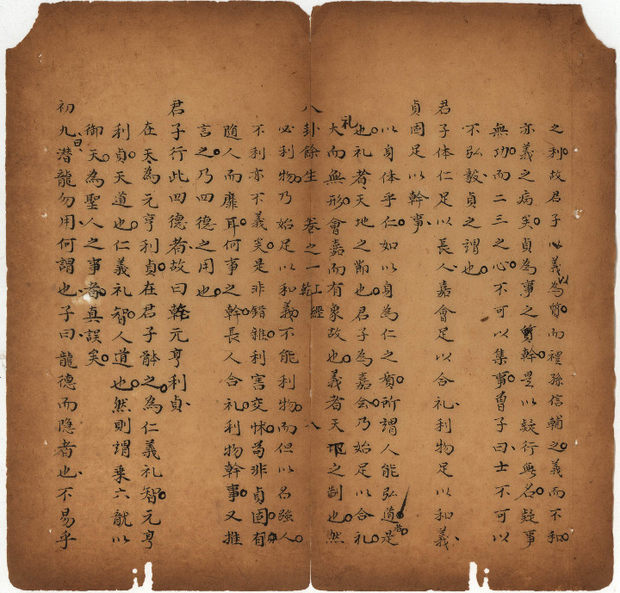 之利故君子以義為質而禮孫信輔之義而不和
亦義之病矣貞為事之質幹是以疑行無名疑事
無功而二三之心不可以集事曾子曰士不可以
不弘毅貞之謂也
君子体仁足以長人嘉會足以合礼利物足以和義
貞固足以幹事
以身体乎仁如以身為仁之質所謂人能弘道是
也礼者天地之節也君子為嘉会乃始足以合礼
礼大而無形會嘉而有象故也義者天下之制也然
八卦餘生 卷之一 乾 上經 八
必利物乃始足以和義不能利物而但以名強人
不利亦不義矣是非錯雜利害交怵苟非貞固有
隨人而靡耳何事之幹長人合礼利物幹事又推
言之乃四德之用也
君子行此四德者故曰乾元亨利貞
在天為元亨利貞在君子體之為仁義礼智元亨
利貞天道也仁義礼智人道也然則謂乘六龍以
御天為聖人之事者真誤矣
初九曰潜龍勿用何謂也子曰龍德而隱者也不易乎